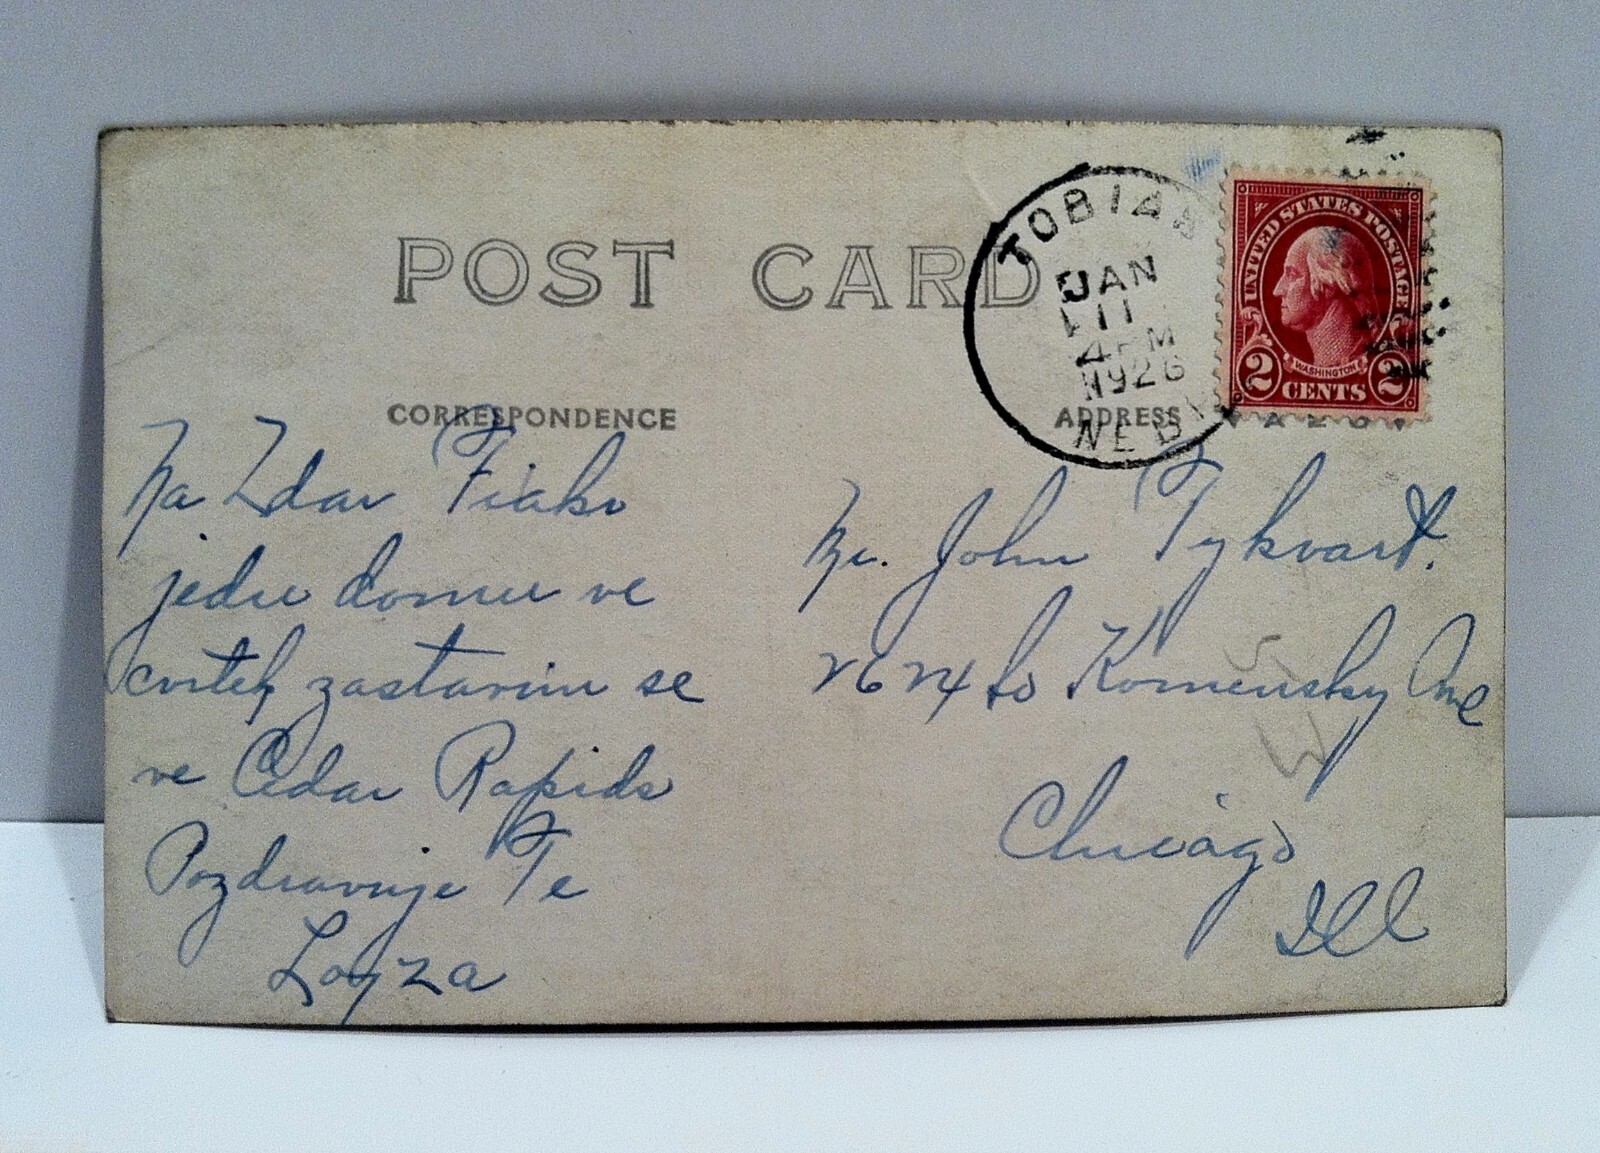 POST CARD
TOBIAS
JAN
11
4 PM
1926
NEBR.
UNITED STATES POSTAGE
WASHINGTON
2 CENTS 2
CORRESPONDENCE
ADDRESS
Na Zdar
jedu domu ve
cvrtek zastavim se
ve Cedar Rapids
Pozdravuje Te
Lojza
Mr. John Tykvart.
2624 So Komensky Ave
Chicago
Ill